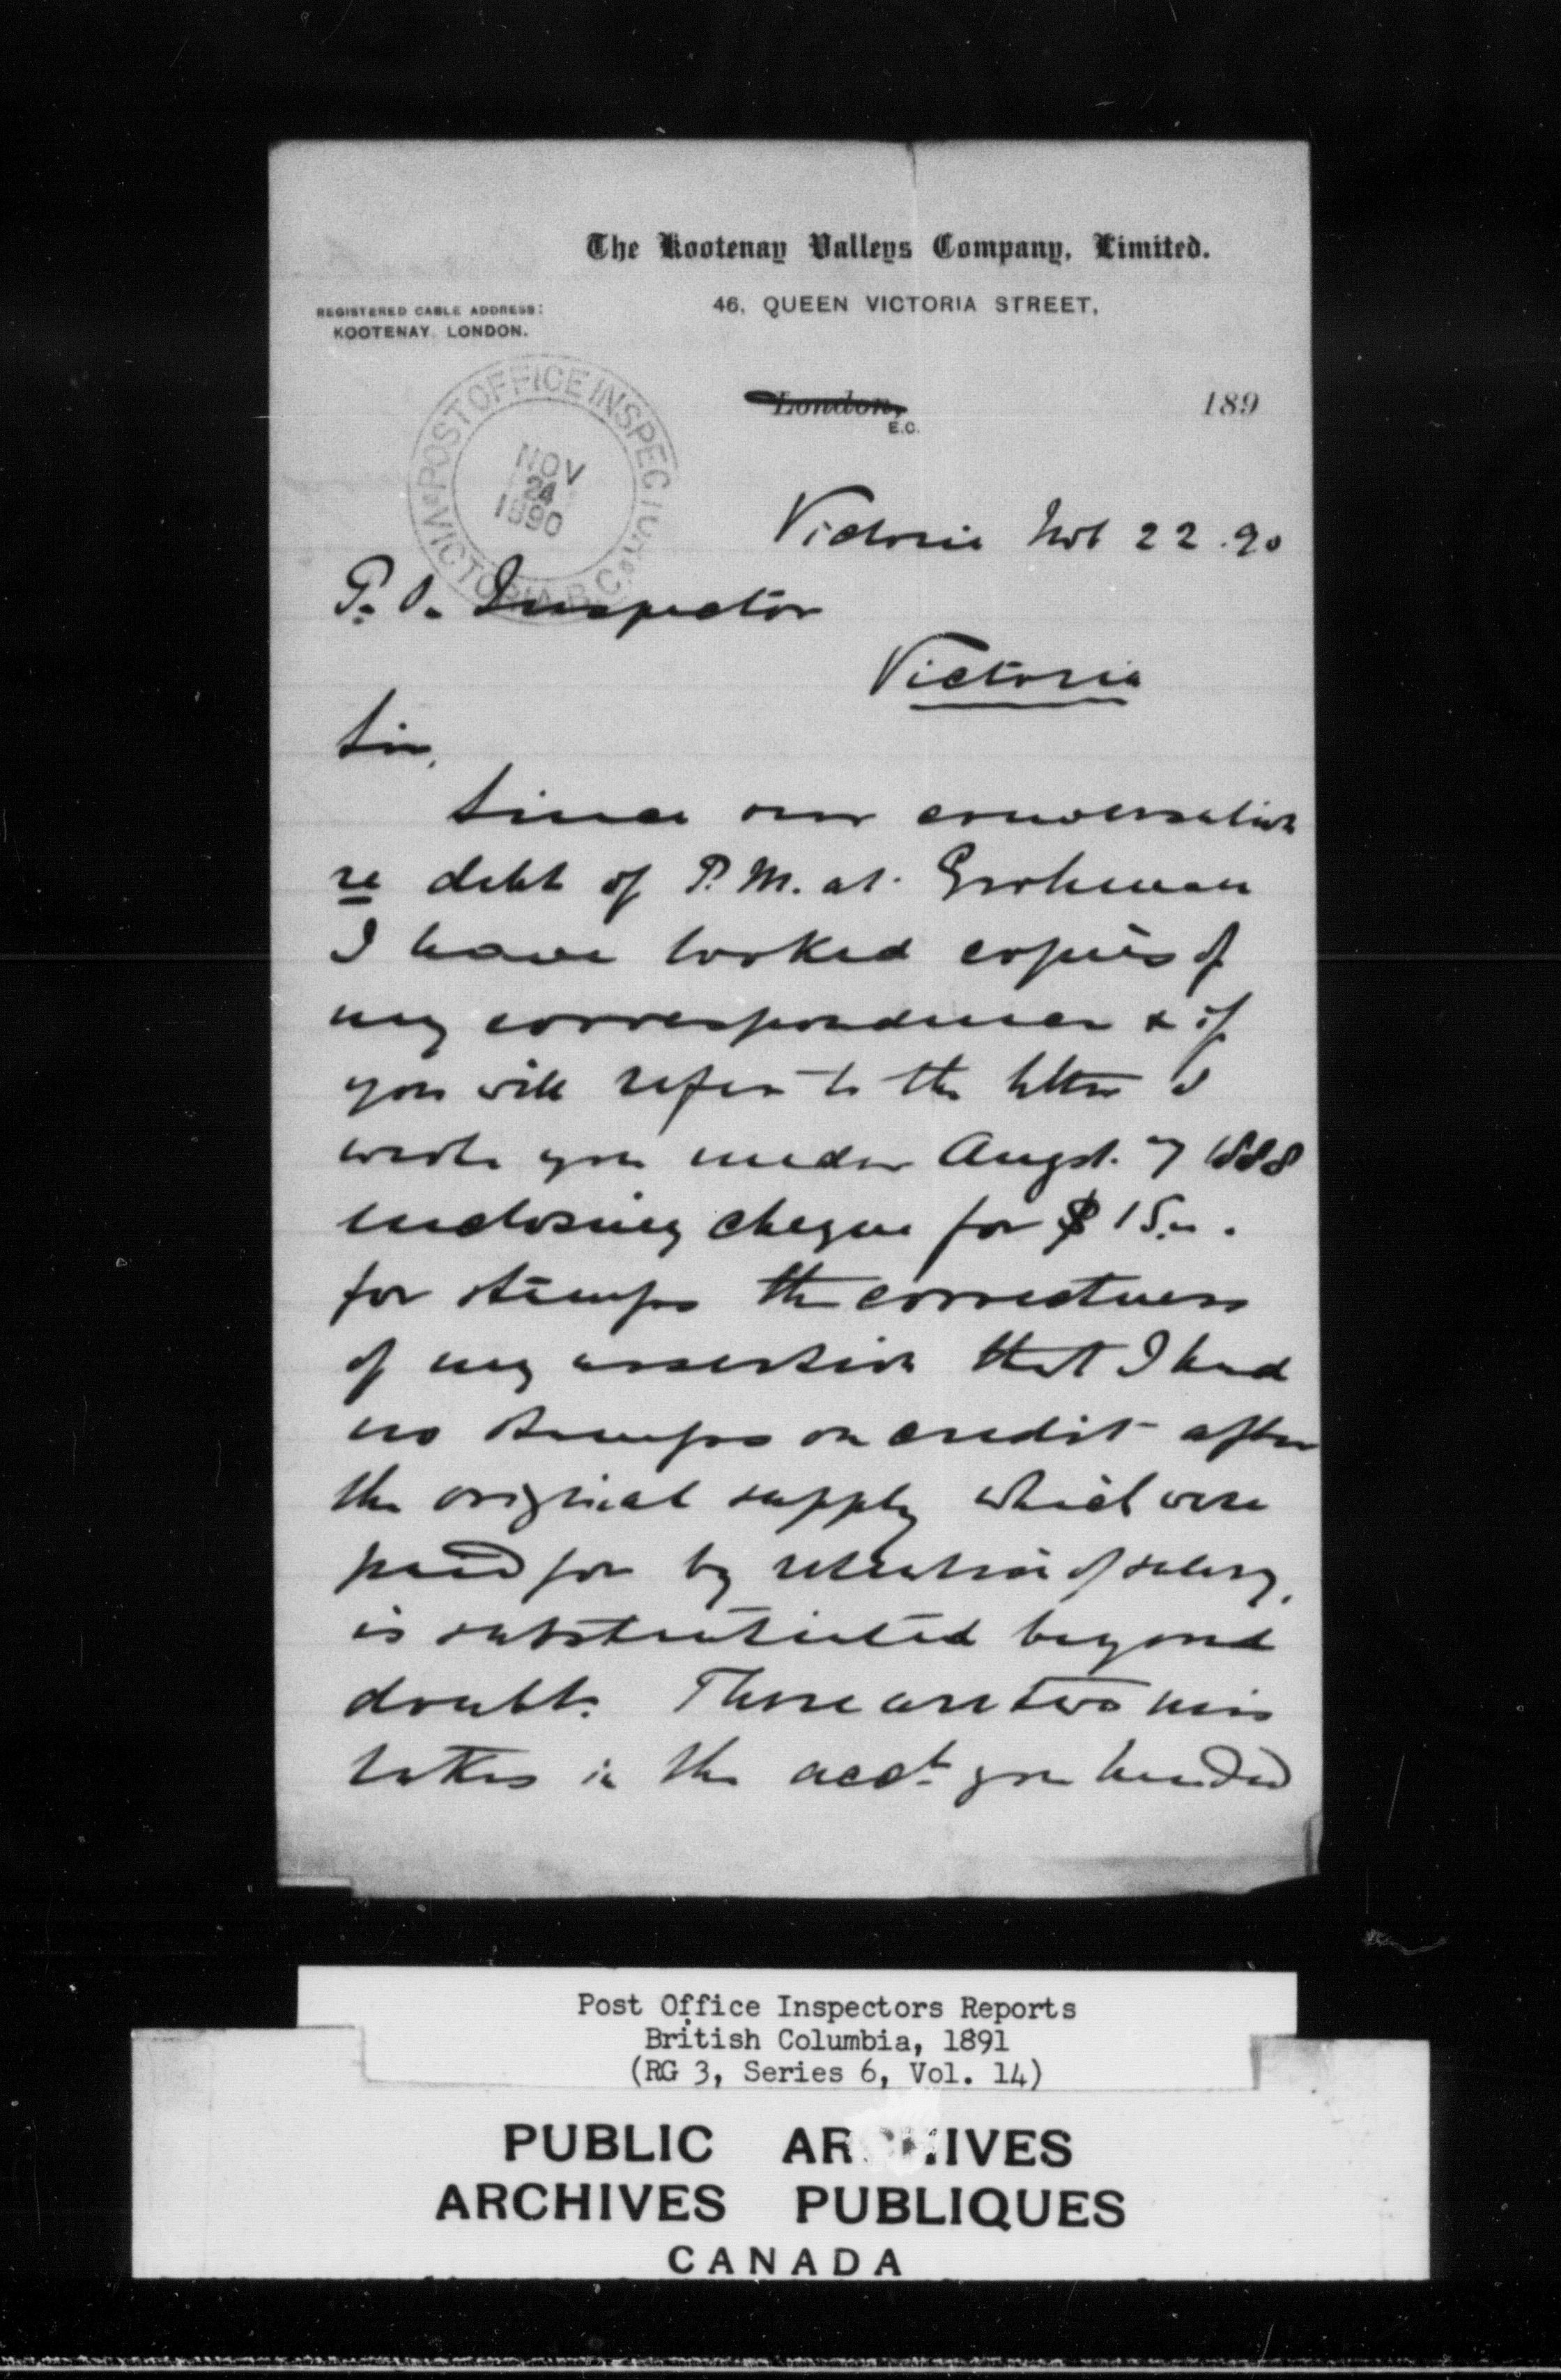 The Kootenay Valleys Company, Limited.
46, QUEEN VICTORIA STREET,
REGISTERED CABLE ADDRESS:
KOOTENAY, LONDON.
London,
E.C.
189
POST OFFICE INSPECTOR
VICTORIA B.C.
NOV
24
1890
Victoria Nov 22. 90
P. O. Inspector
Victoria
Sir,
Since our conversation
re debt of P. M. at. Grohman
I have looked copies of
my correspondence & if
you will refer to the letter I
wrote you under Augst. 7 1888
enclosing cheque for $ 15.
for stamps the correctness
of my assertion that I had
no stamps on credit after
the original supply which were
paid for by retention of salary,
is substantiated beyond
doubt. There are two mis
takes in the acct. you handed
Post Office Inspectors Reports
British Columbia, 1891
(RG 3, Series 6, Vol. 14)
PUBLIC ARCHIVES
ARCHIVES PUBLIQUES
CANADA